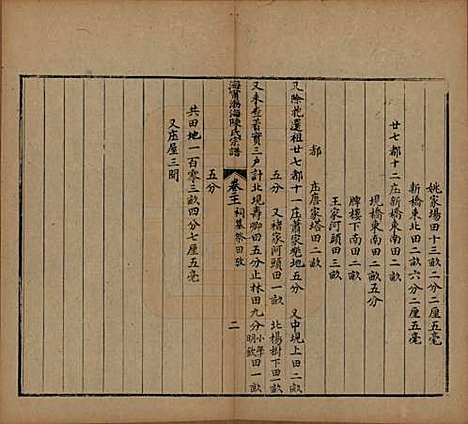 姚家場田十三畝二分二厘五毫
新橋東北田二畝六分二厘五毫
廿七都十二庄新橋東南田二畝
堰橋東南田二畝五分
牌樓下南田二畝
王家河頭田三畝
庄唐家塔田二畝
都
又除花還祖廿七都十一庄蕭家兠地五分 又中堰上田二畝
五分 又褚家河頭田一畝 北楊樹下田一畝
又来查蓄寳三户計北堰壽㘭田五分止林田九分小學田一畝明欽
海寧渤海陳氏宗譜 卷二 祠墓祭田攷 二
五分
共田地一百零三畝四分七厘五毫
又庄屋三間